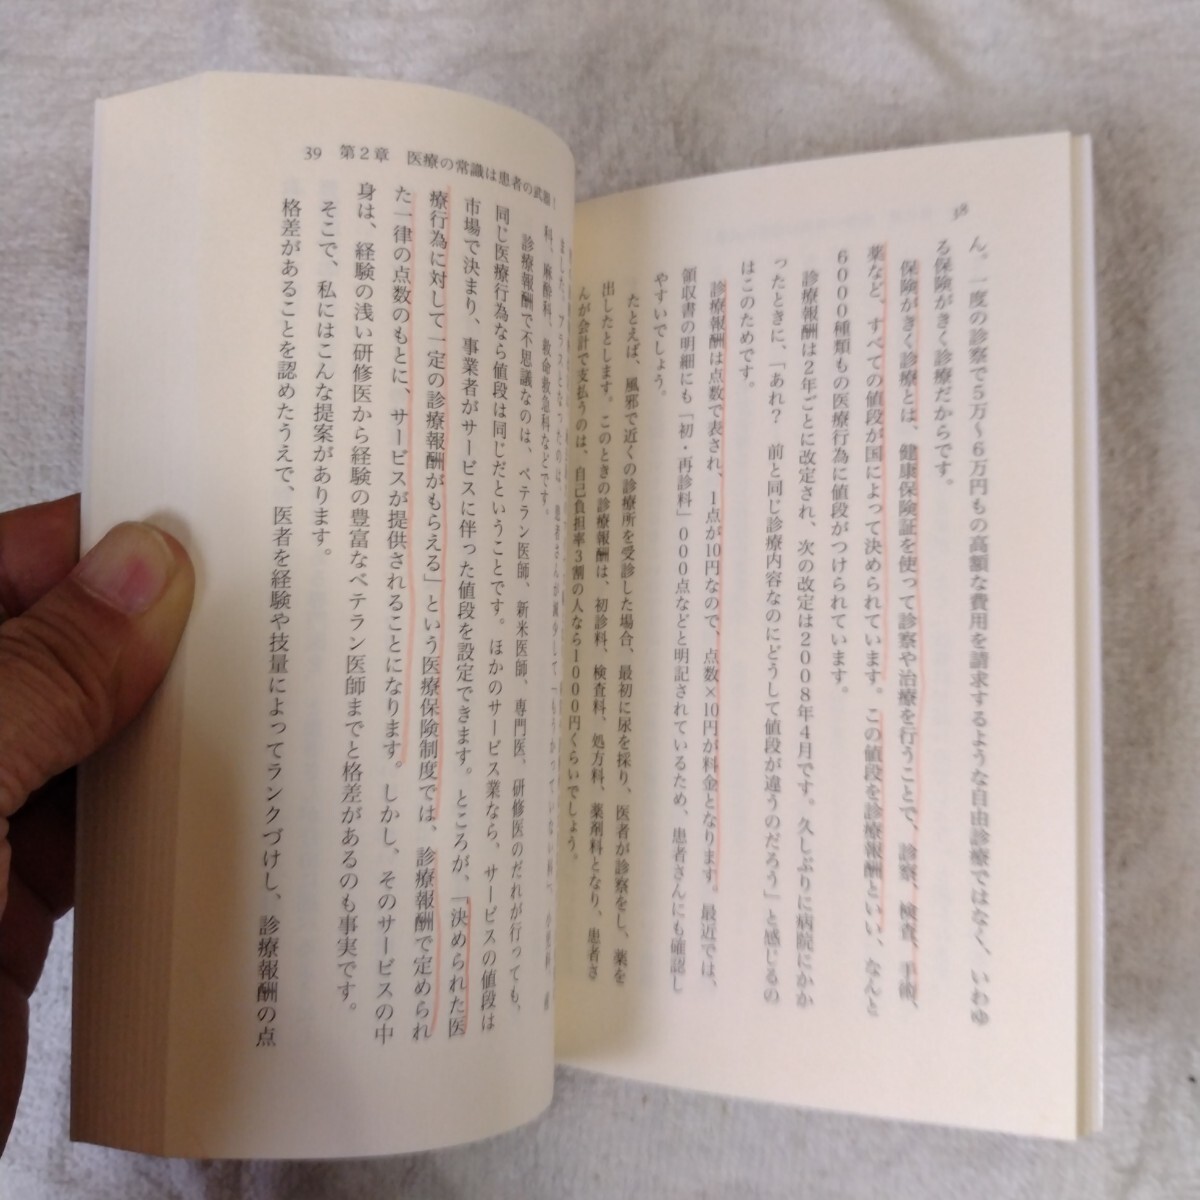 38
ん。一度の診察で5万〜6万円もの高額な費用を請求するような自由診療ではなく、いわゆ
る保険がきく診療だからです。
保険がきく診療とは、健康保険証を使って診察や治療を行うことで、診察、検査、手術、
薬など、すべての値段が国によって決められています。この値段を診療報酬といい、なんと
6000種類もの医療行為に値段がつけられています。
診療報酬は2年ごとに改定され、次の改定は2008年4月です。久しぶりに病院にかか
ったときに、「あれ？　前と同じ診療内容なのにどうして値段が違うのだろう」と感じるの
はこのためです。
診療報酬は点数で表され、1点が10円なので、点数×10円が料金となります。最近では、
領収書の明細にも「初・再診料」000点などと明記されているため、患者さんにも確認し
やすいでしょう。
たとえば、風邪で近くの診療所を受診した場合、最初に尿を採り、医者が診察をし、薬を
出したとします。このときの診療報酬は、初診料、検査料、処方料、薬剤料となり、患者さ
んが会計で支払うのは、自己負担率3割の人なら1000円くらいでしょう。
39　第2章　医療の常識は患者の武器！
科、麻酔科、救命救急科などです。
診療報酬で不思議なのは、ベテラン医師、新米医師、専門医、研修医のだれが行っても、
同じ医療行為なら値段は同じだということです。ほかのサービス業なら、サービスの値段は
市場で決まり、事業者がサービスに伴った値段を設定できます。ところが、「決められた医
療行為に対して一定の診療報酬がもらえる」という医療保険制度では、診療報酬で定められ
た一律の点数のもとに、サービスが提供されることになります。しかし、そのサービスの中
身は、経験の浅い研修医から経験の豊富なベテラン医師までと格差があるのも事実です。
そこで、私にはこんな提案があります。
格差があることを認めたうえで、医者を経験や技量によってランクづけし、診療報酬の点